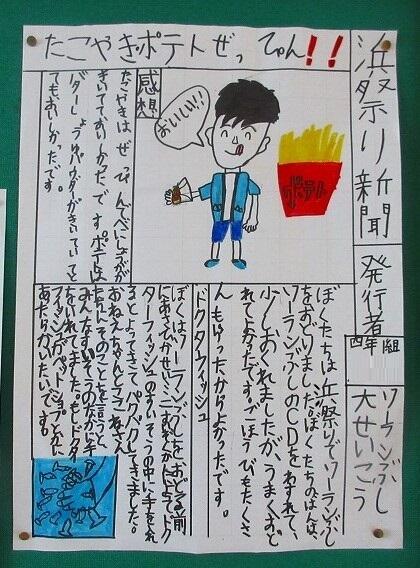 浜祭り新聞
発行者
四年 組
ソーランぶし
大せいこう
たこやきポテトぜっぴん!!
おいしい!!
ポテト
ぼくたちは、浜祭りでソーランぶし
をおどりました。ぼくたちのはんは、
ソーランぶしのCDをわすれて、
少しおくれましたが、うまくおど
れてよかったです。ごほうびもたくさ
んもらったからよかったです。
感想
たこやきはぜっぴんでべにしょうがが
きいてておいしかったです。ポテトは
バターしょうゆパウダーがきいていてと
てもおいしかったです。
ドクターフィッシュ
ぼくはソーランぶしをおどる前
ターフィッシュのすいそうの中に手をいれ
るとよってきてパクパクしてきました。
おねえちゃん
たちにそのことを言うと、
みんなすいそうのなかに手
をいれてました。もしドクター
フィッシュがペットショップとかに
あったらかいたいです。